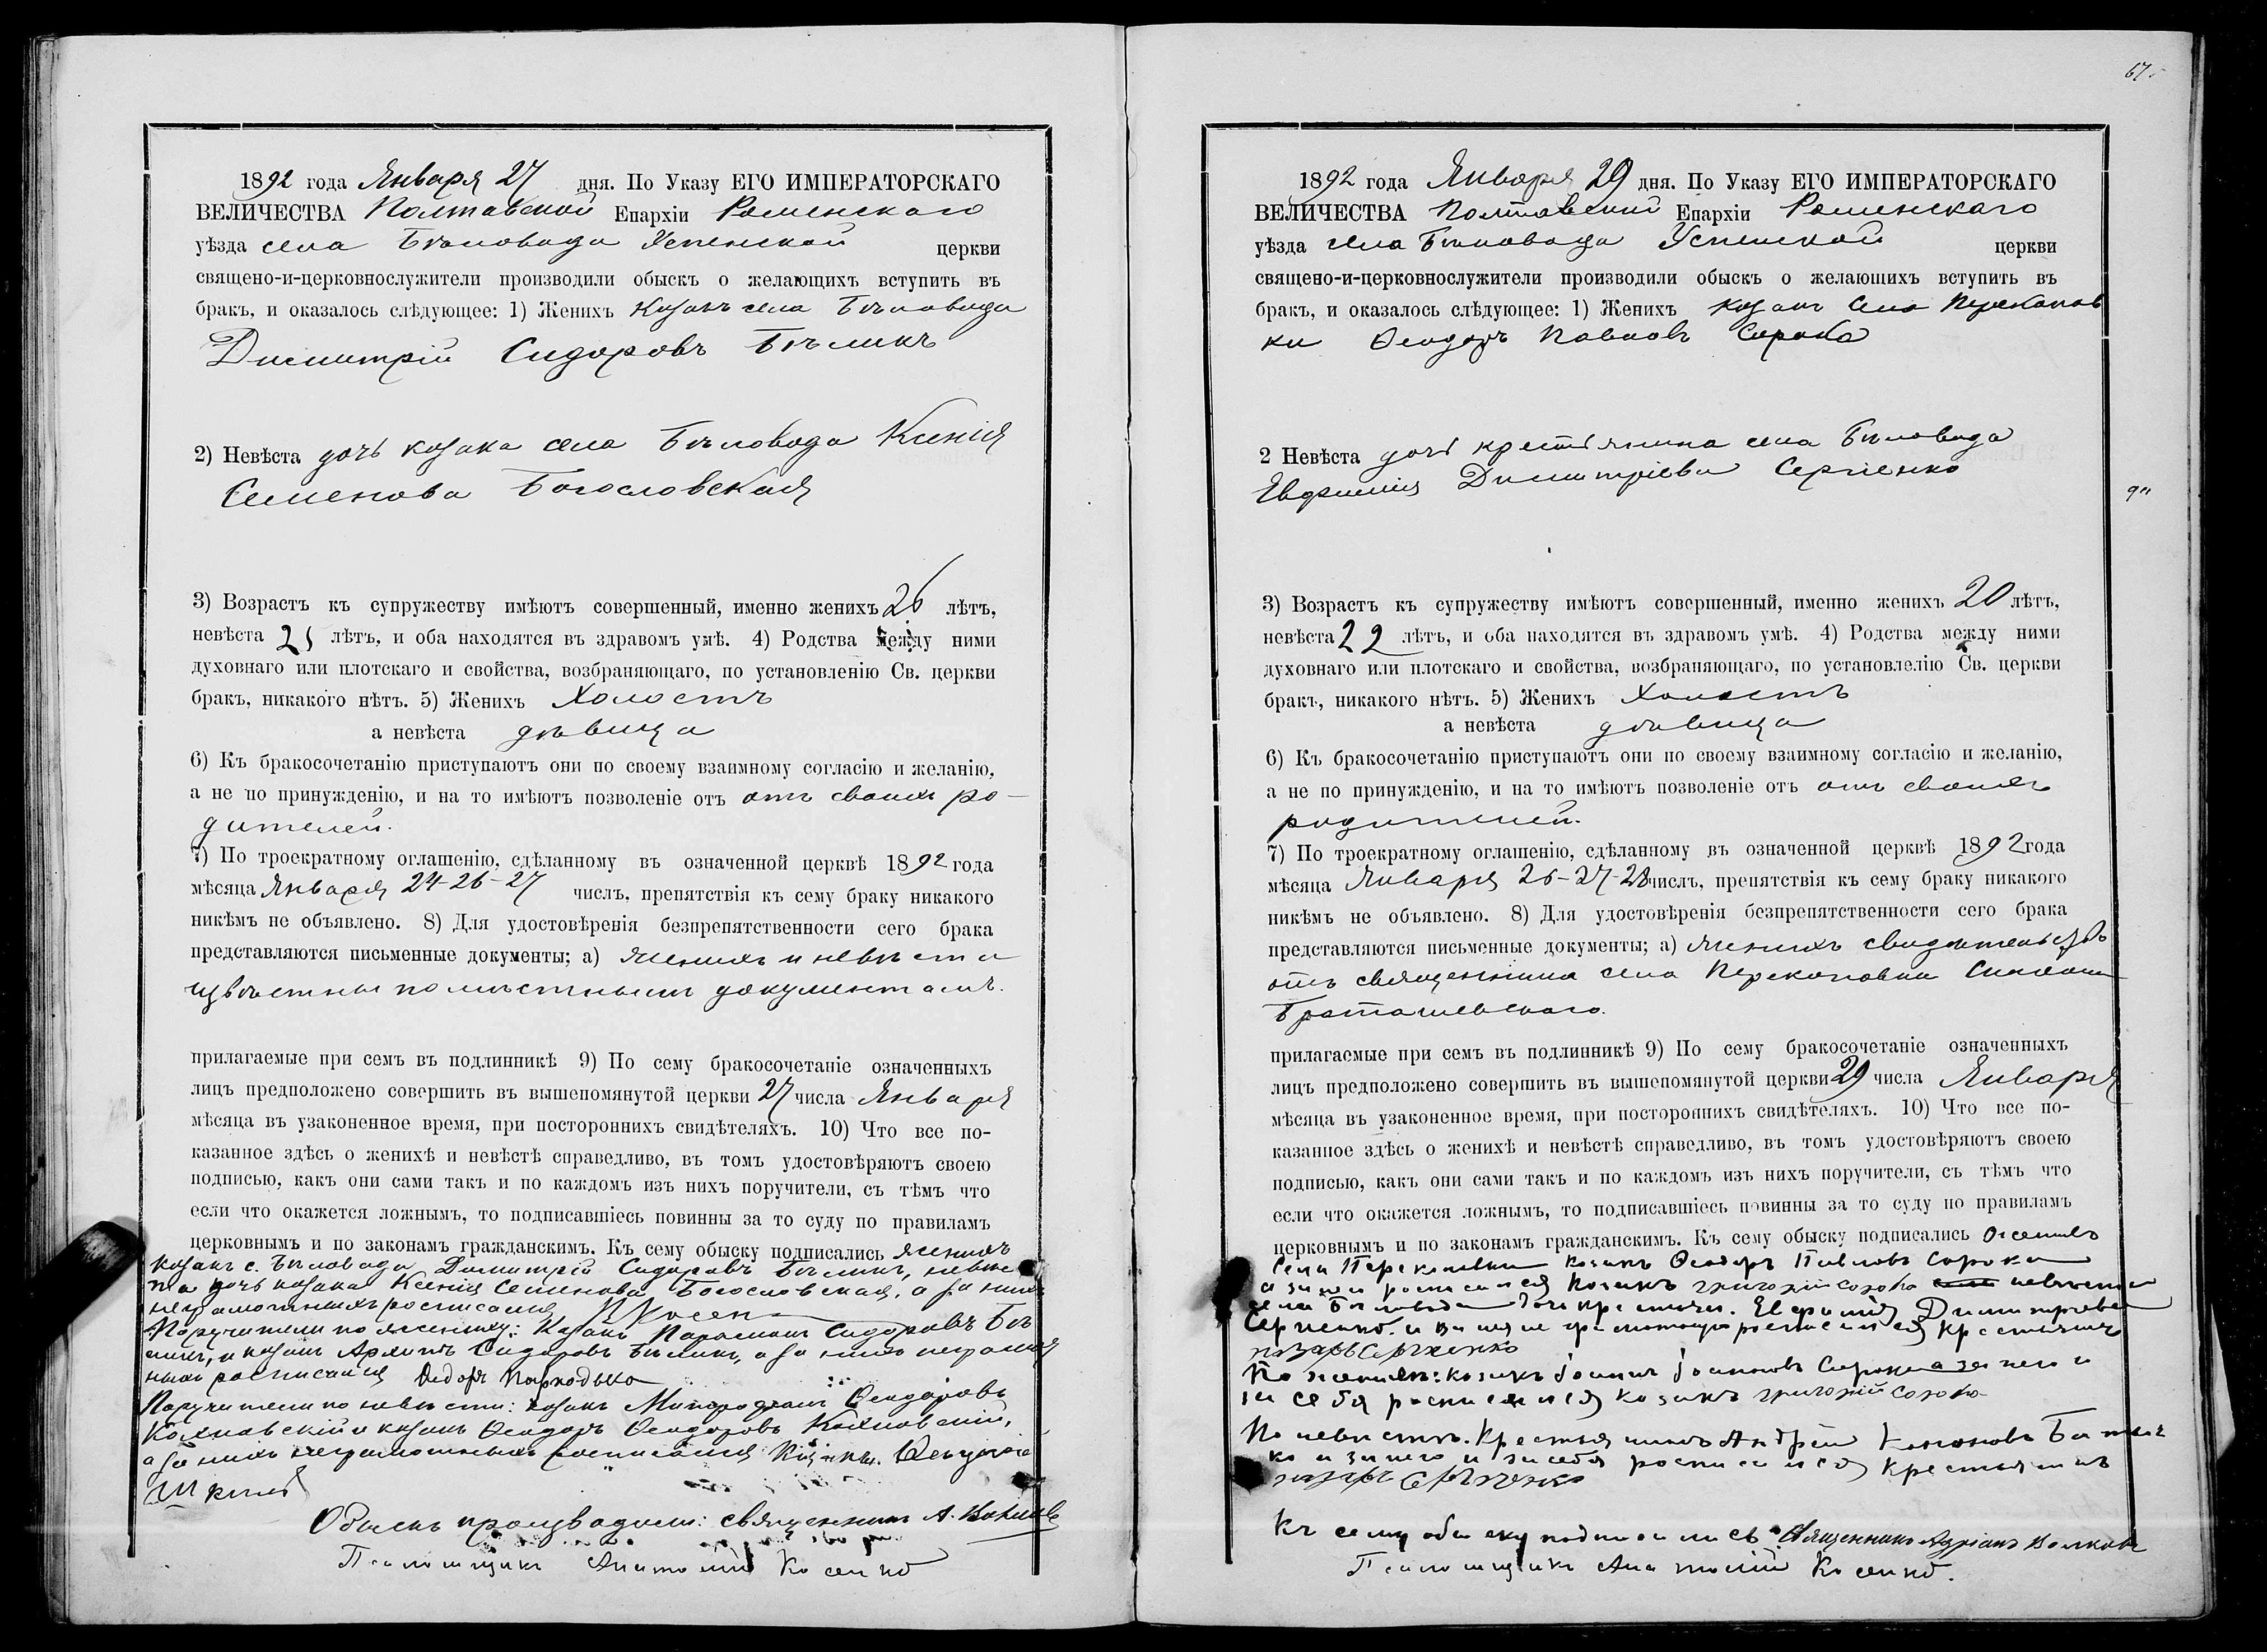 1892 года Января 27 дня. По Указу ЕГО ИМПЕРАТОРСКАГО
ВЕЛИЧЕСТВА Полтавской Епархіи Роменскаго
уѣзда села Бѣловода Успенской церкви
священо-и-церковнослужители производили обыскъ о желающихъ вступить въ
бракъ, и оказалось слѣдующее: 1) Женихъ козакъ села Бѣловода
Димитрій Сидоровъ Бѣликъ
2) Невѣста дочь козака села Бѣловода Ксенія
Семенова Богословская
3) Возрастъ къ супружеству имѣютъ совершенный, именно женихъ 26 лѣтъ,
невѣста 21 лѣтъ, и оба находятся въ здравомъ умѣ. 4) Родства между ними
духовнаго или плотскаго и свойства, возбраняющаго, по установленію Св. церкви
бракъ, никакого нѣтъ. 5) Женихъ холостъ
а невѣста дѣвица
6) Къ бракосочетанію приступаютъ они по своему взаимному согласію и желанію,
а не по принужденію, и на то имѣютъ позволеніе отъ отъ своихъ ро-
дителей.
7) По троекратному оглашенію, сдѣланному въ означенной церквѣ 1892 года
мѣсяца Января 24-26-27 числъ, препятствія къ сему браку никакого
никѣмъ не объявлено. 8) Для удостовѣренія безпрепятственности сего брака
представляются письменные документы; а) женихъ и невѣста
извѣстны по мѣстнымъ документамъ.
прилагаемые при семъ въ подлинникѣ 9) По сему бракосочетаніе означенныхъ
лицъ предположено совершить въ вышепомянутой церкви 27 числа Января
мѣсяца въ узаконенное время, при постороннихъ свидѣтеляхъ. 10) Что все по-
казанное здѣсь о женихѣ и невѣстѣ справедливо, въ томъ удостовѣряютъ своею
подписью, какъ они сами такъ и по каждомъ изъ нихъ поручители, съ тѣмъ что
если что окажется ложнымъ, то подписавшіесь повинны за то суду по правиламъ
церковнымъ и по законамъ гражданскимъ. Къ сему обыску подписались женихъ
козакъ с. Бѣловода Димитрій Сидоровъ Бѣликъ, невѣс
та дочь козака Ксенія Семенова Богословская, а за нихъ
неграмотныхъ росписался
Поручители по жениху: Козакъ Сидоровъ Бѣ
ликъ, и козакъ Сидоровъ Бѣликъ, а за нихъ неграмот
ныхъ росписался Федоръ Пархоdько
Поручители по невѣсти: козакъ Феодоровъ
и козакъ Феодоръ Феодоровъ
а за нихъ неграмотныхъ росписался козакъ
Обыскъ производили: священникъ А. Волковъ
Псаломщикъ Анатолій Косенко
67
1892 года Января 29 дня. По Указу ЕГО ИМПЕРАТОРСКАГО
ВЕЛИЧЕСТВА Полтавской Епархіи Роменскаго
уѣзда села Бѣловода Успенской церкви
священо-и-церковнослужители производили обыскъ о желающихъ вступить въ
бракъ, и оказалось слѣдующее: 1) Женихъ козакъ села Перекопов
ки Феодоръ Павловъ Сорока
2 Невѣста дочь крестьянина села Бѣловода
Евфимія Димитріева Сергіенко
3) Возрастъ къ супружеству имѣютъ совершенный, именно женихъ 20 лѣтъ,
невѣста 22 лѣтъ, и оба находятся въ здравомъ умѣ. 4) Родства между ними
духовнаго или плотскаго и свойства, возбраняющаго, по установлелію Св. церкви
бракъ, никакого нѣтъ. 5) Женихъ холостъ
а невѣста дѣвица
6) Къ бракосочетанію приступаютъ они по своему взаимному согласію и желанію,
а не по принужденію, и на то имѣютъ позволеніе отъ отъ своихъ
родителей.
7) По троекратному оглашенію, сдѣланному въ означенной церквѣ 1892 года
мѣсяца Января 26-27-28 числъ, препятствія къ сему браку никакого
никѣмъ не объявлено. 8) Для удостовѣренія безпрепятственности сего брака
представляются письменные документы; а) женихъ
отъ священника села Перекоповки
прилагаемые при семъ въ подлинникѣ 9) По сему бракосочетаніе означенныхъ
лицъ предположено совершить въ вышепомянутой церкви 29 числа Января
мѣсяца въ узаконенное время, при постороннихъ свидѣтеляхъ. 10) Что все по-
казанное здѣсь о женихѣ и невѣстѣ справедливо, въ томъ удостовѣряютъ своею
подписью, какъ они сами такъ и по каждомъ изъ нихъ поручители, съ тѣмъ что
если что окажется ложнымъ, то подписавшіесь повинны за то суду по правиламъ
церковнымъ и по законамъ гражданскимъ. Къ сему обыску подписались женихъ
села Перекоповки козакъ Феодоръ Павловъ Сорока
а за него росписался козакъ григорій сорока невѣста
села Бѣловода дочь крестьян. Евфимія Димитріева
Сергіенко. и росписался крестьянинъ
По женихѣ: козакъ Іоаннъ Іоанновъ Сорока а за него и
за себя росписался козакъ григорій сорока
По невѣстѣ. Крестьянинъ Андрей Кононовъ
ко а за него и за себя росписался крестьянинъ
Къ сему обыску подписались Священникъ Адріанъ Волковъ
Псаломщикъ Анатолій Косенко.